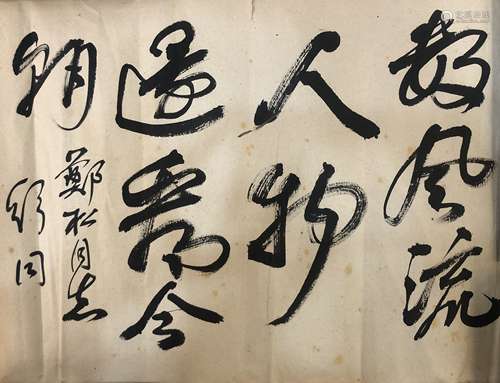 數風流
人物
還看今
朝
鄭松同志
舒同